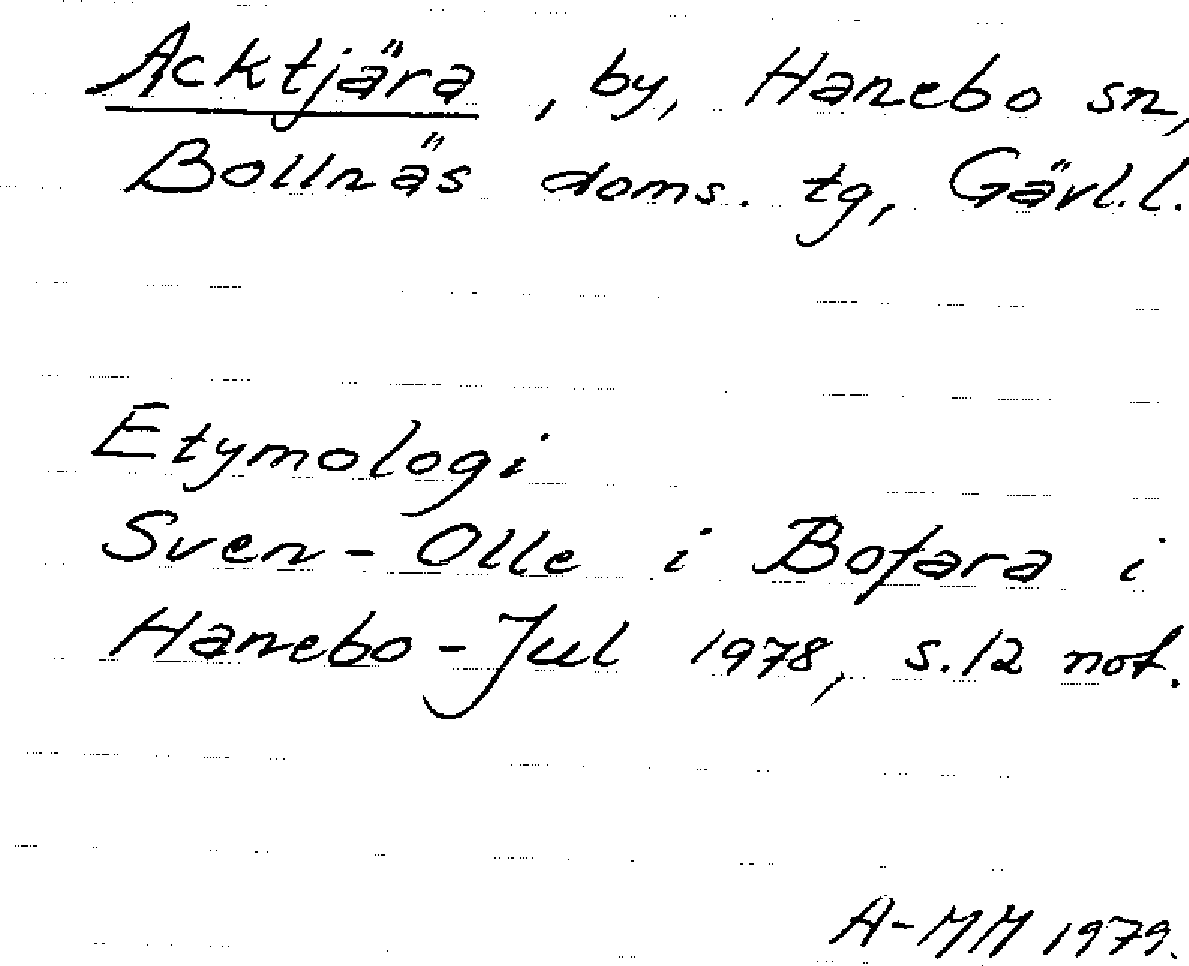 Acktjära, by, Hanebo sn,
Bollnäs doms. tg, Gävl.l.
Etymologi
Sven-Olle i Bofara i
Hanebo-Jul 1978, s.12 not.
A-MM 1979.